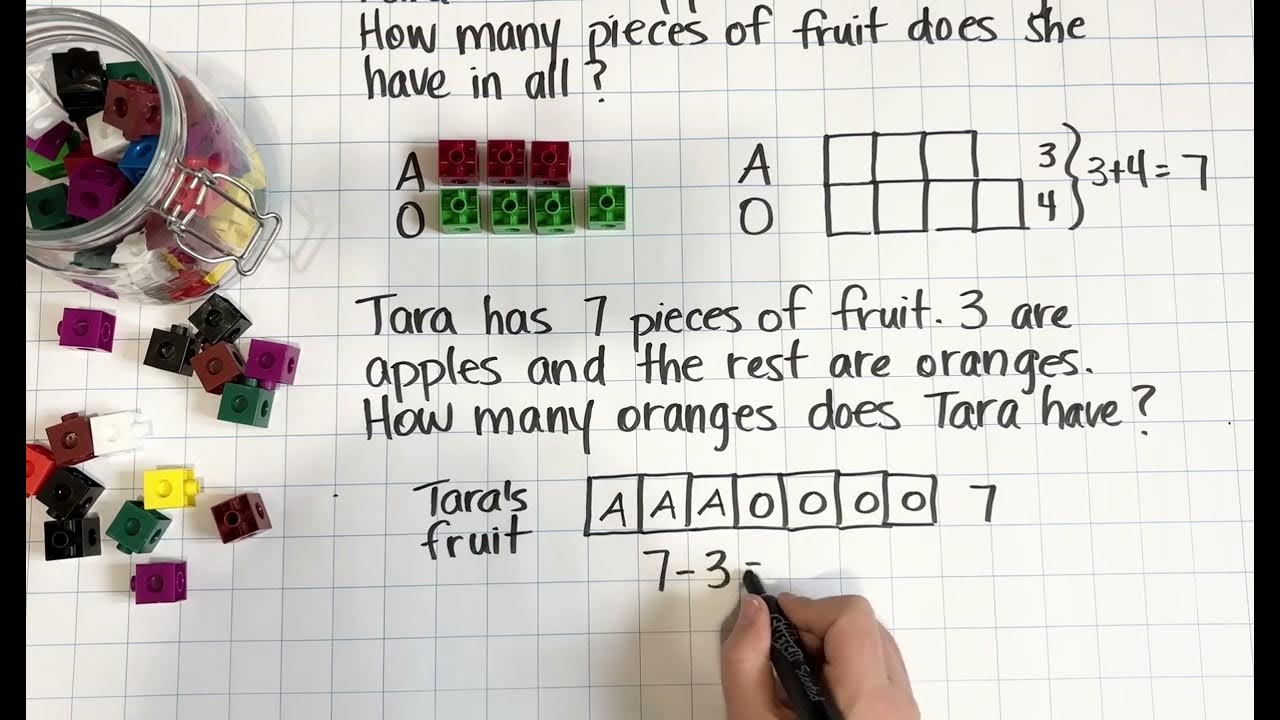 How many pieces of fruit does she
have in all?
A
O
A
O
3
4
3+4=7
Tara has 7 pieces of fruit. 3 are
apples and the rest are oranges.
How many oranges does Tara have?
Tara's
fruit
A A A O O O O 7
7-3=
Scented